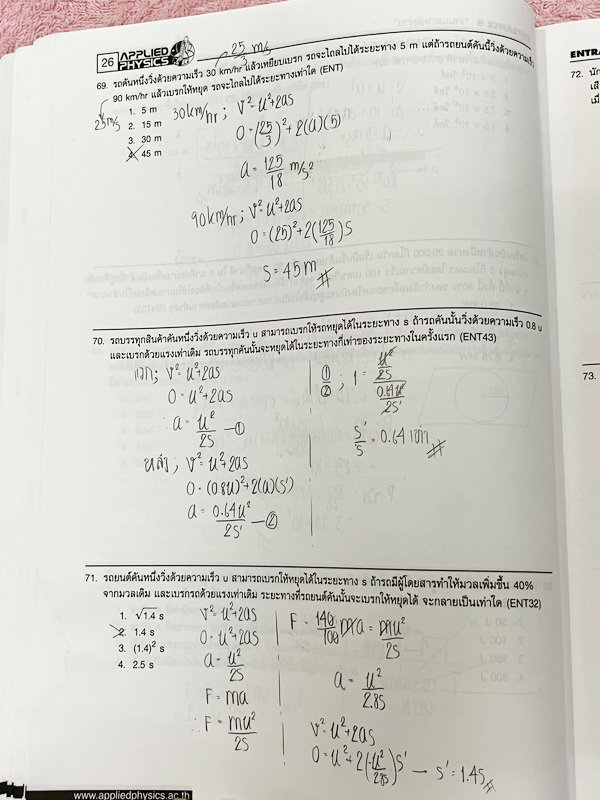 26 APPLIED PHYSICS
25/3 m/s
69. รถคันหนึ่งวิ่งด้วยความเร็ว 30 km/hr แล้วเหยียบเบรก รถจะไถลไปได้ระยะทาง 5 m แต่ถ้ารถยนต์คันนี้วิ่งด้วยความเร็ว
90 km/hr แล้วเบรกให้หยุด รถจะไถลไปได้ระยะทางเท่าใด (ENT)
25 m/s
1. 5 m
2. 15 m
3. 30 m
4. 45 m
30 km/hr; V² = u²+2as
0 = (25/3)²+2(a)(5)
a = 125/18 m/s²
90 km/hr; V² = u²+2as
0 = (25)²+2(125/18)S
S = 45 m
70. รถบรรทุกสินค้าคันหนึ่งวิ่งด้วยความเร็ว u สามารถเบรกให้รถหยุดได้ในระยะทาง s ถ้ารถคันนั้นวิ่งด้วยความเร็ว 0.8 u
และเบรกด้วยแรงเท่าเดิม รถบรรทุกคันนั้นจะหยุดได้ในระยะทางกี่เท่าของระยะทางในครั้งแรก (ENT43)
แรก; V² = u²+2as
0 = u²+2as
∴ a = u²/2s —①
หลัง; V² = u²+2as
0 = (0.8u)²+2(a)(s')
a = 0.64u²/2s' —②
①/② ; 1 = (u²/2s)/(0.64u²/2s')
s'/s = 0.64 เท่า
71. รถยนต์คันหนึ่งวิ่งด้วยความเร็ว u สามารถเบรกให้หยุดได้ในระยะทาง s ถ้ารถมีผู้โดยสารทำให้มวลเพิ่มขึ้น 40%
จากมวลเดิม และเบรกรถด้วยแรงเท่าเดิม ระยะทางที่รถยนต์คันนั้นจะเบรกให้หยุดได้ จะกลายเป็นเท่าใด (ENT32)
1. √1.4 s
2. 1.4 s
3. (1.4)² s
4. 2.5 s
V² = u²+2as
0 = u²+2as
a = u²/2s
F = ma
∴ F = mu²/2s
F = 140/100 ma = mu²/2s
a = u²/2.8s
V² = u²+2as
0 = u²+2(-u²/2.8s)s' → s' = 1.4s
www.appliedphysics.ac.th
ENTRA
72. นัก
73.